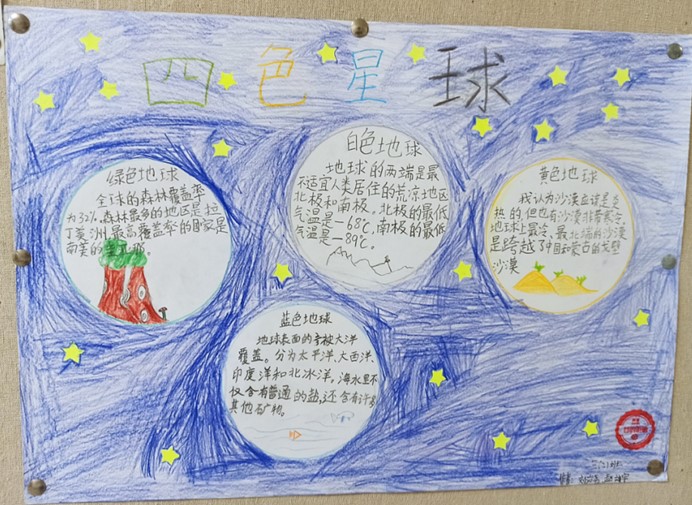 四色星球
绿色地球
全球的森林覆盖率
为30%.森林最多的地区是拉
丁美洲.最高覆盖率的国家是
南美的
白色地球
地球的两端是最
不适宜人类居住的荒凉地区
北极和南极。北极的最低
气温是-68℃.南极的最低
气温是-89℃.
黄色地球
我认为沙漠应该是炎
热的,但也有沙漠非常寒冷.
地球上最冷、最北端的沙漠
是跨越了中国和蒙古的戈壁
沙漠
蓝色地球
地球表面的 被大洋
覆盖。分为太平洋、大西洋、
印度洋和北冰洋。海水里不
仅含有普通的盐,还含有许多
其他矿物.